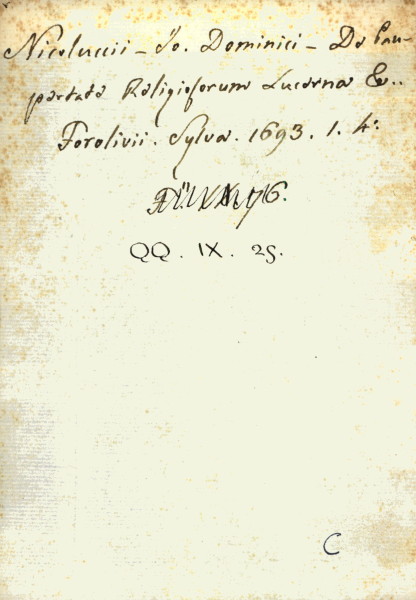 Nicoluccii - Jo. Dominici - De Pau-
pertate Religiosorum Lucerna &..
Forolivii. Sylva. 1693. 1. 4:
QQ. IX. 25.
C